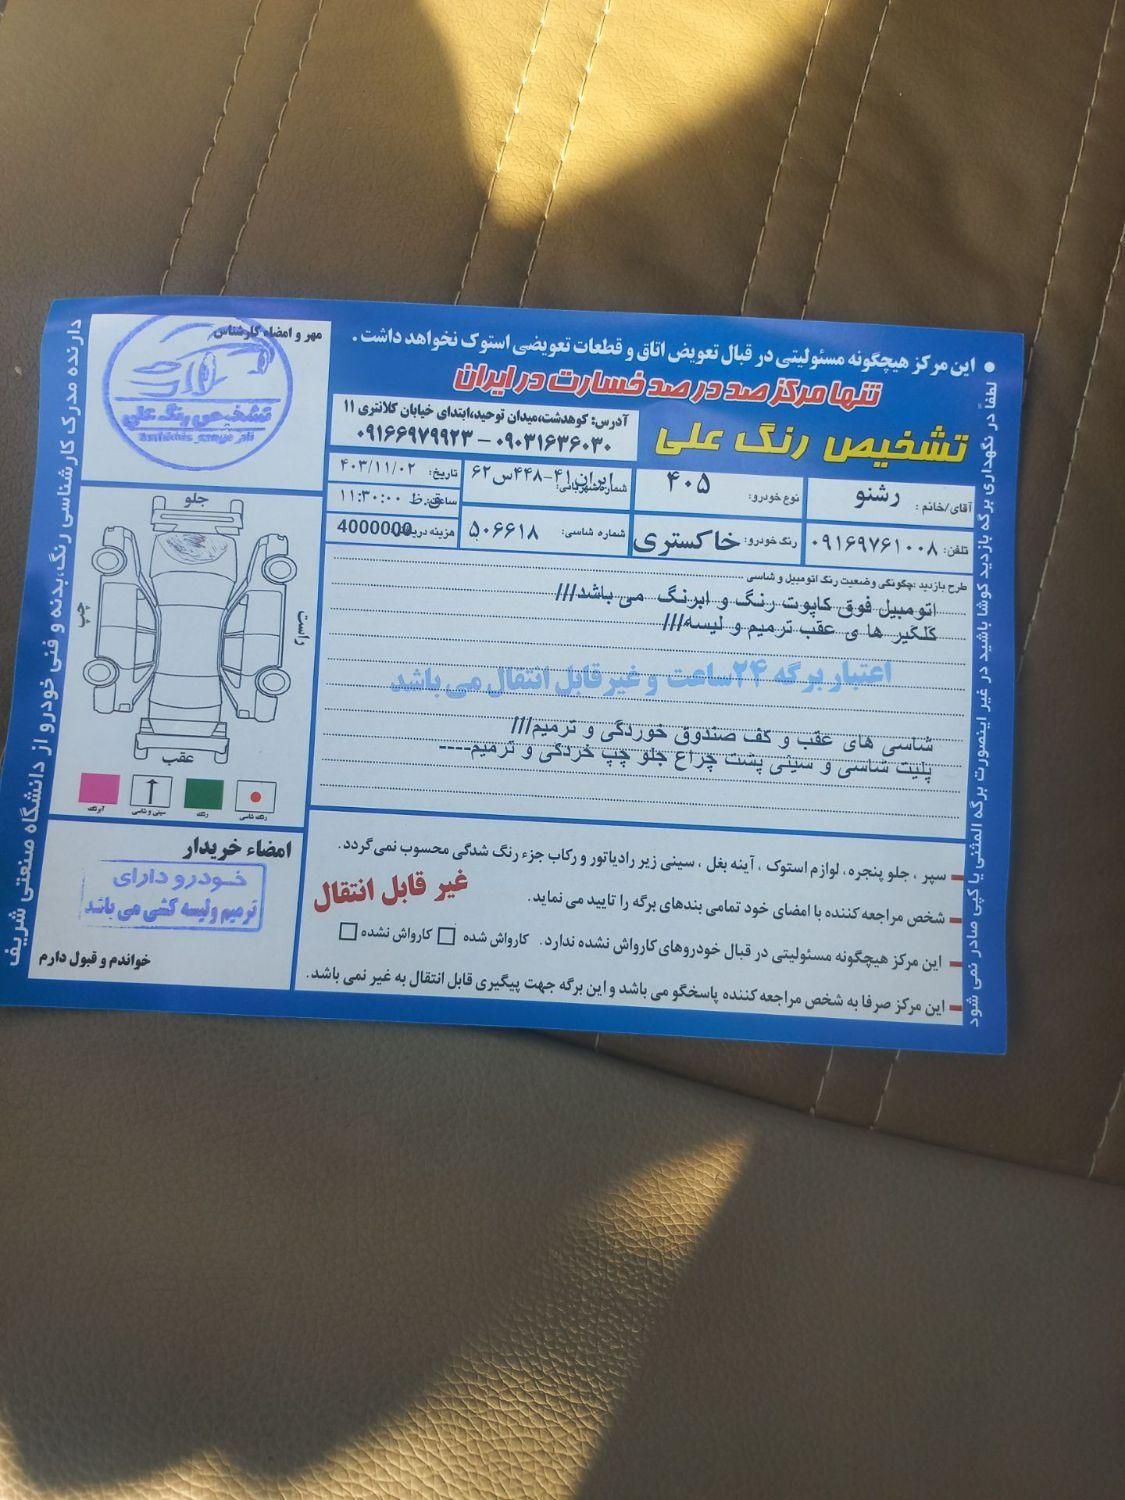 این مرکز هیچگونه مسئولیتی در قبال تعویض اتاق و قطعات تعویضی استوک نخواهد داشت.
تنها مرکز صد در صد خسارت در ایران
تشخیص رنگ علی
آدرس: کوهدشت،میدان توحید،ابتدای خیابان کلانتری ۱۱
۰۹۱۶۶۹۷۹۹۲۳ – ۰۹۰۳۱۶۳۶۰۳۰
آقای/خانم: رشنو
نوع خودرو: ۴۰۵
شماره شهربانی: ایران۴۱-۴۴۸س۶۲
تاریخ: ۴۰۳/۱۱/۰۲
تلفن: ۰۹۱۶۹۷۶۱۰۰۸
رنگ خودرو: خاکستری
شماره شاسی: ۵۰۶۶۱۸
ساعت: ۱۱:۳۰:۰۰ ق.ظ
هزینه 4000000
طرح بازدید :چگونگی وضعیت رنگ اتومبیل و شاسی
اتومبیل فوق کاپوت رنگ و ابرنگ می باشد///
گلگیر ها ی عقب ترمیم و لیسه///
اعتبار برگه ۲۴ساعت و غیر قابل انتقال می باشد
شاسی های عقب و کف صندوق خوردگی و ترمیم///
پلیت شاسی و سینی پشت چراغ جلو چپ خردگی و ترمیم----
سپر ، جلو پنجره، لوازم استوک ، آینه بغل ، سینی زیر رادیاتور و رکاب جزء رنگ شدگی محسوب نمی گردد.
شخص مراجعه کننده با امضای خود تمامی بندهای برگه را تایید می نماید.
غیر قابل انتقال
این مرکز هیچگونه مسئولیتی در قبال خودروهای کارواش نشده ندارد. کارواش شده کارواش نشده
این مرکز صرفا به شخص مراجعه کننده پاسخگو می باشد و این برگه جهت پیگیری قابل انتقال به غیر نمی باشد.
مهر و امضاء کارشناس
تشخیص رنگ علی
جلو
راست
چپ
عقب
رنگ شاسی
رنگ
سینی و شاسی
آبرنگ
امضاء خریدار
خودرو دارای
ترمیم ولیسه کشی می باشد
خواندم و قبول دارم
دارنده مدرک کارشناسی رنگ،بدنه و فنی خودرو از دانشگاه صنعتی شریف
لطفاً در نگهداری برگه بازدید کوشا باشید در غیر اینصورت برگه المثنی یا کپی صادر نمی شود